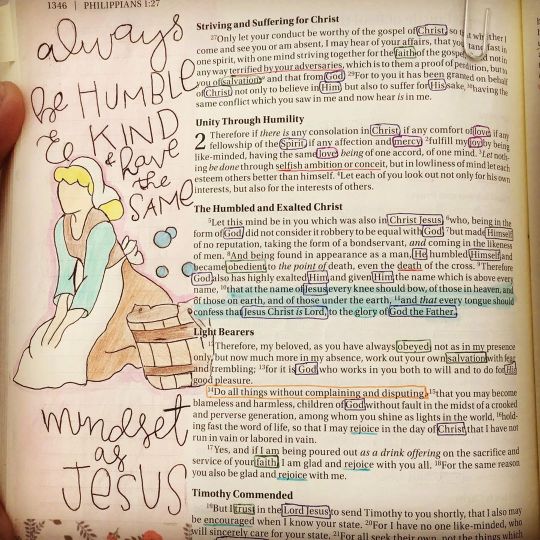 1346 | PHILIPPIANS 1:27
always
be HUMBLE
& KIND
& have
the
SAME
mindset
as
JESUS
Striving and Suffering for Christ
27Only let your conduct be worthy of the gospel of Christ, so that whether I
come and see you or am absent, I may hear of your affairs, that you stand fast in
one spirit, with one mind striving together for the faith of the gospel, 28and not in
any way terrified by your adversaries, which is to them a proof of perdition, but to
you of salvation, and that from God. 29For to you it has been granted on behalf
of Christ, not only to believe in Him, but also to suffer for His sake, 30having the
same conflict which you saw in me and now hear is in me.
Unity Through Humility
2 Therefore if there is any consolation in Christ, if any comfort of love, if any
fellowship of the Spirit, if any affection and mercy, 2fulfill my joy by being
like-minded, having the same love, being of one accord, of one mind. 3Let noth-
ing be done through selfish ambition or conceit, but in lowliness of mind let each
esteem others better than himself. 4Let each of you look out not only for his own
interests, but also for the interests of others.
The Humbled and Exalted Christ
5Let this mind be in you which was also in Christ Jesus, 6who, being in the
form of God, did not consider it robbery to be equal with God, 7but made Himself
of no reputation, taking the form of a bondservant, and coming in the likeness
of men. 8And being found in appearance as a man, He humbled Himself and
became obedient to the point of death, even the death of the cross. 9Therefore
God also has highly exalted Him and given Him the name which is above every
name, 10that at the name of Jesus every knee should bow, of those in heaven, and
of those on earth, and of those under the earth, 11and that every tongue should
confess that Jesus Christ is Lord, to the glory of God the Father.
Light Bearers
12Therefore, my beloved, as you have always obeyed, not as in my presence
only, but now much more in my absence, work out your own salvation with fear
and trembling; 13for it is God who works in you both to will and to do for His
good pleasure.
14Do all things without complaining and disputing, 15that you may become
blameless and harmless, children of God without fault in the midst of a crooked
and perverse generation, among whom you shine as lights in the world, 16hold-
ing fast the word of life, so that I may rejoice in the day of Christ that I have not
run in vain or labored in vain.
17Yes, and if I am being poured out as a drink offering on the sacrifice and
service of your faith, I am glad and rejoice with you all. 18For the same reason
you also be glad and rejoice with me.
Timothy Commended
19But I trust in the Lord Jesus to send Timothy to you shortly, that I also may
be encouraged when I know your state. 20For I have no one like-minded, who
will sincerely care for your state. 21For all seek their own, not the things which